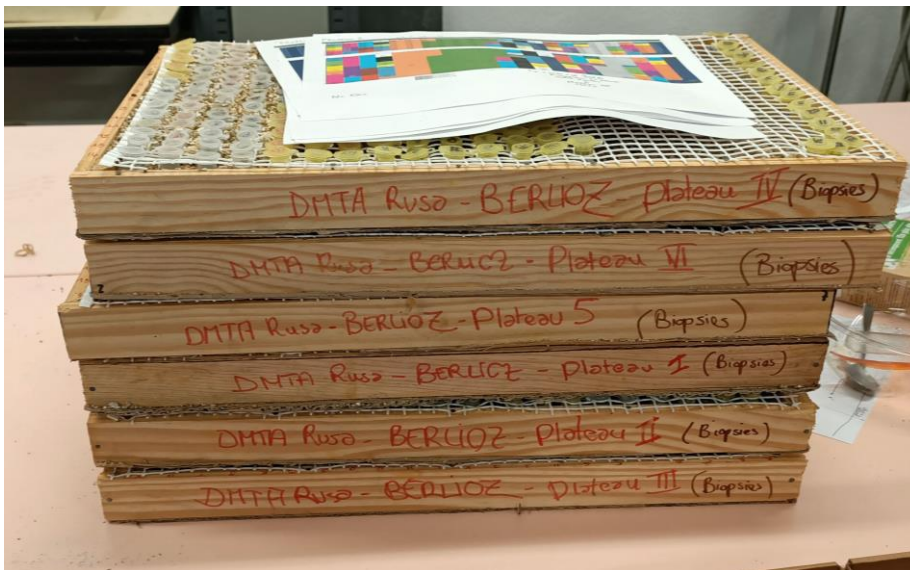 DMTA Rusa - BERLIOZ - Plateau IV (Biopsies)
DMTA Rusa - BERLIOZ - Plateau VI (Biopsies)
DMTA Rusa - BERLIOZ - Plateau 5 (Biopsies)
DMTA Rusa - BERLIOZ - Plateau I (Biopsies)
DMTA Rusa - BERLIOZ - Plateau II (Biopsies)
DMTA Rusa - BERLIOZ - Plateau III (Biopsies)